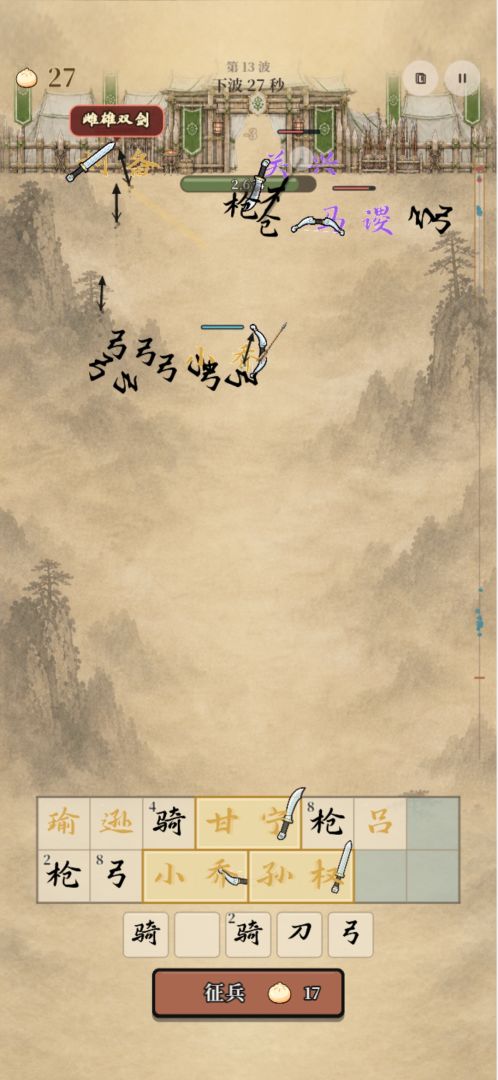 第 13 波
27
下波 27 秒
雌雄双剑
-3
备
关 兴
2.6
枪
仓
马 谡
弓
弓
弓
弓
小 乔
弓
瑜 逊 4 骑 甘 宁 8 枪 吕
2 枪 8 弓 小 乔 孙 权
骑 2 骑 刀 弓
征兵 17